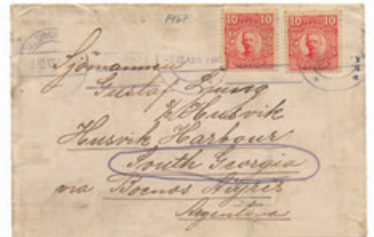 1967
10 10 10 10
Sjömannen
Gustaf Ljung
Husvik
Husvik Harbour
South Georgia
via Buenos Ayres
Argentina